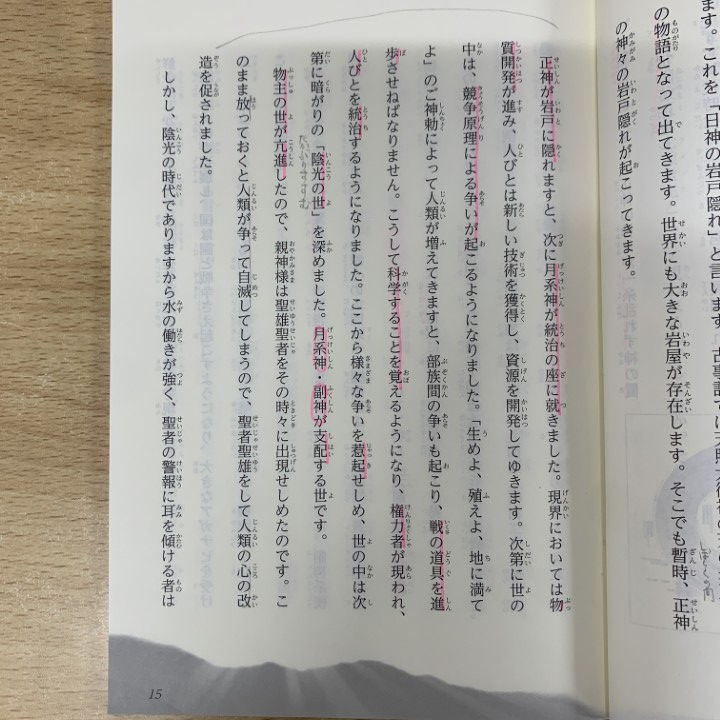 ます。これを「日神の岩戸隠れ」と言います。古事記では天照
の物語となって出てきます。世界にも大きな岩屋が存在します。そこでも暫時、正神
の神々の岩戸隠れが起こってきます。
正神が岩戸に隠れますと、次に月系神が統治の座に就きました。現界においては物
質開発が進み、人びとは新しい技術を獲得し、資源を開発してゆきます。次第に世の
中は、競争原理による争いが起こるようになりました。「生めよ、殖えよ、地に満て
よ」のご神勅によって人類が増えてきますと、部族間の争いも起こり、戦の道具を進
歩させねばなりません。こうして科学することを覚えるようになり、権力者が現われ、
人びとを統治するようになりました。ここから様々な争いを惹起せしめ、世の中は次
第に暗がりの「陰光の世」を深めました。月系神・副神が支配する世です。
物主の世が亢進したので、親神様は聖雄聖者をその時々に出現せしめたのです。こ
のまま放っておくと人類が争って自滅してしまうので、聖者聖雄をして人類の心の改
造を促されました。
しかし、陰光の時代でありますから水の働きが強く、聖者の警報に耳を傾ける者は
15